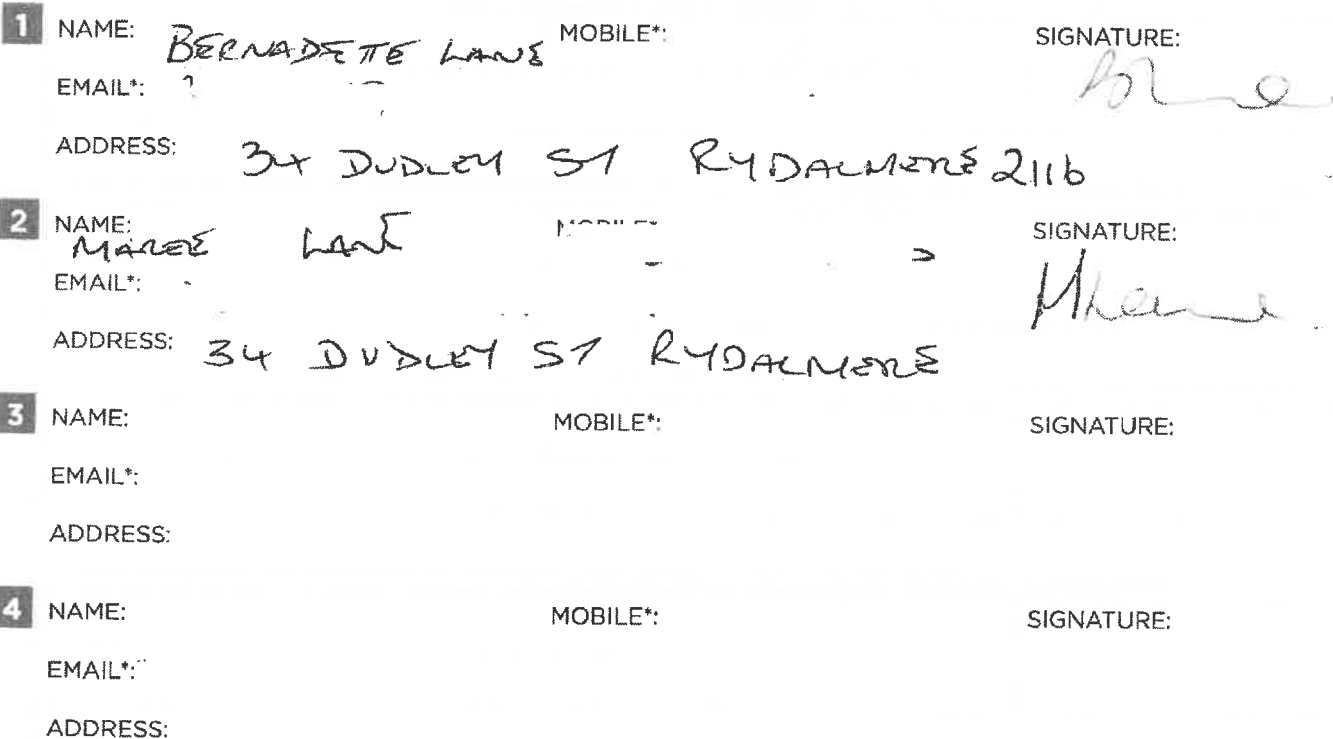 1 NAME: BERNADETTE LANE MOBILE*: SIGNATURE:
EMAIL*:
ADDRESS: 34 DUDLEY ST RYDALMERE 2116
2 NAME: MAREE LANE SIGNATURE:
EMAIL*:
ADDRESS: 34 DUDLEY ST RYDALMERE
3 NAME: MOBILE*: SIGNATURE:
EMAIL*:
ADDRESS:
4 NAME: MOBILE*: SIGNATURE:
EMAIL*:
ADDRESS: